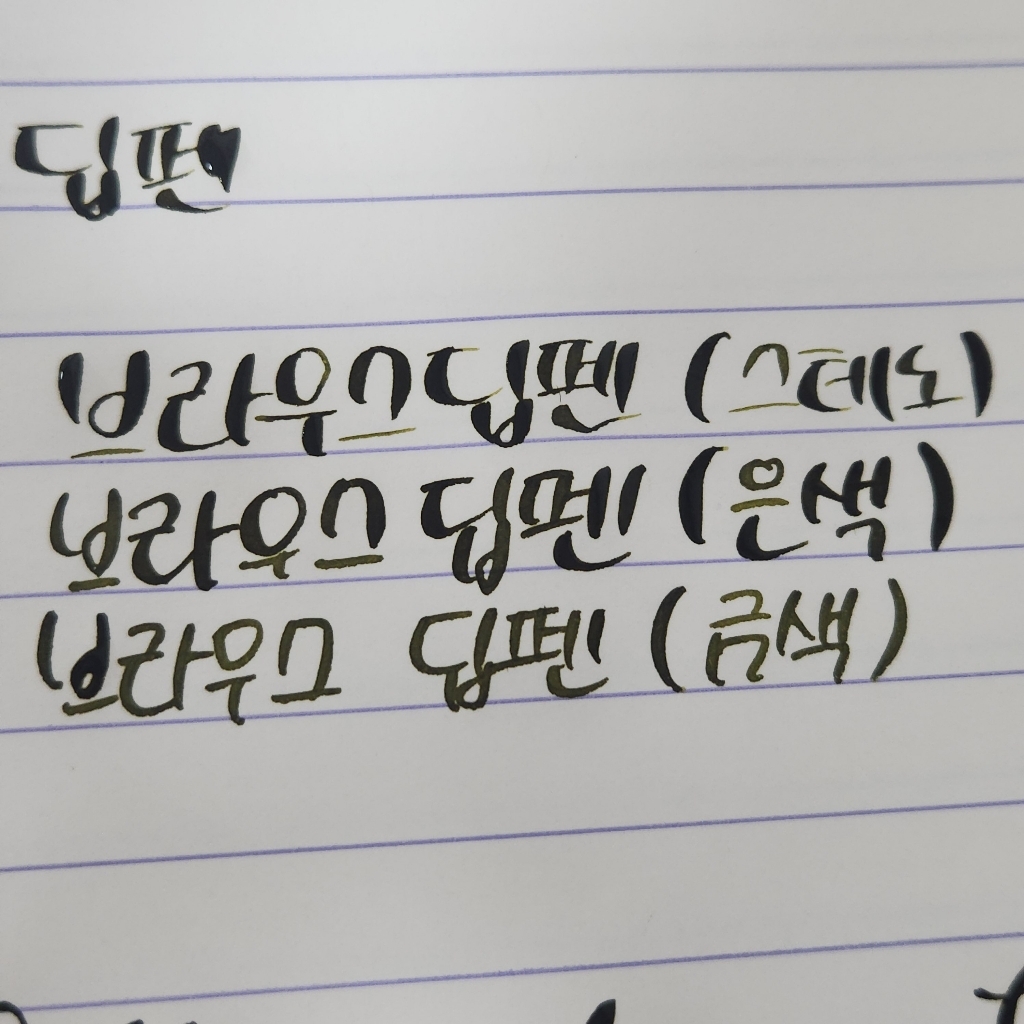 딥펜
브라우스딥펜 (스테노)
브라우스 딥펜 (은색)
브라우스 딥펜 (금색)